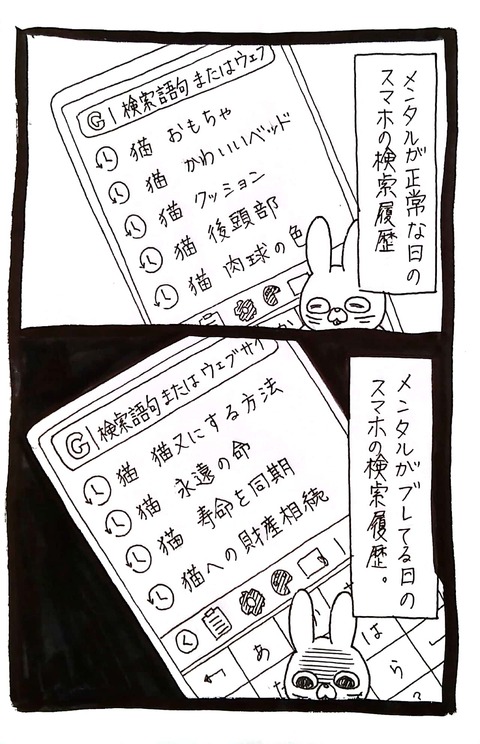 メンタルが正常な日の
スマホの検索履歴
G|検索語句またはウェブ
猫 おもちゃ
猫 かわいいベッド
猫 クッション
猫 後頭部
猫 肉球の色
メンタルがブレてる日の
スマホの検索履歴。
G|検索語句またはウェブサイ
猫 猫又にする方法
猫 永遠の命
猫 寿命を同期
猫への財産相続
あ
は
ら